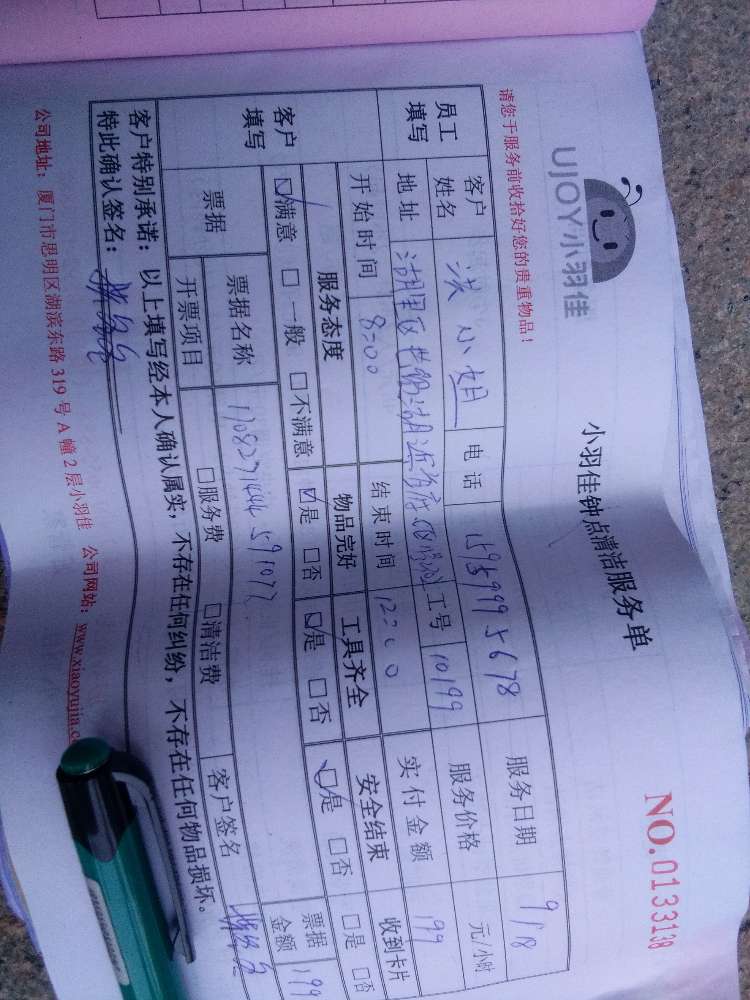 UJOY小羽佳
小羽佳钟点清洁服务单
NO.0133138
请您于服务前收拾好您的贵重物品！
员工填写 客户姓名 洪小姐 电话 15959995678 服务日期 9/18
地址 湖里区 工号 10199 服务价格 元/小时
开始时间 8:00 结束时间 12:00 实付金额 199
客户填写 服务态度 物品完好 工具齐全 安全结束 收到卡片
☑满意 □一般 □不满意 ☑是 □否 ☑是 □否 ☑是 □否 □是 □否
票据 票据名称 客户签名 票据金额 199
开票项目 □服务费 □清洁费
客户特别承诺：以上填写经本人确认属实，不存在任何纠纷，不存在任何物品损坏。
特此确认签名：
公司地址：厦门市思明区湖滨东路319号A幢2层小羽佳 公司网站：www.xiaoyujia.c